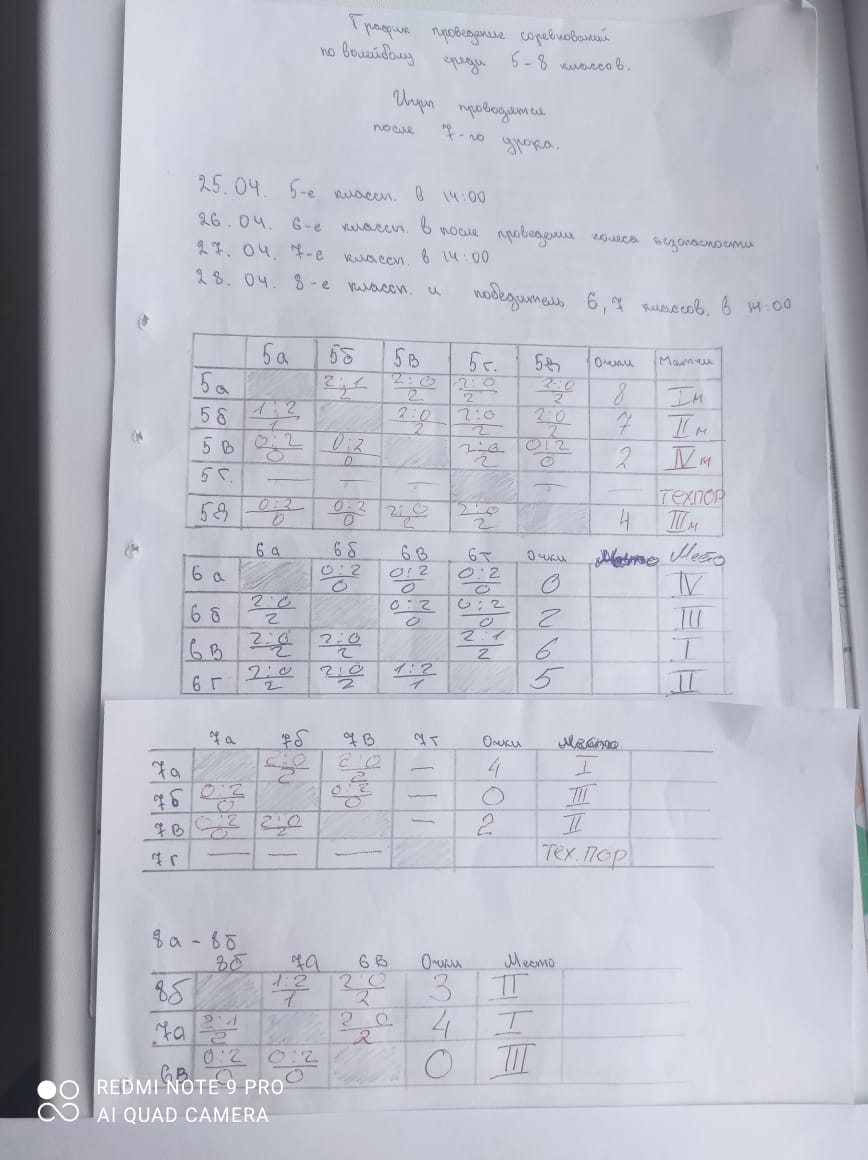 График проведение соревнований
по волейболу среди 5-8 классов.
Игры проводятся
после 7-го урока.
25.04. 5-е классы. в 14:00
26.04. 6-е классы. в после проведения колеса безопасности
27.04. 7-е классы. в 14:00
28.04. 8-е классы. и победитель 6,7 классов. в 14:00
5а 5б 5в 5г. 5д Очки
5а 2:1/2 2:0/2 2:0/2 2:0/2 8 Iм
5б 1:2/1 2:0/2 2:0/2 2:0/2 7 IIм
5в 0:2/0 0:2/0 2:0/2 0:2/0 2 IVм
5г. — — — — — тех.пор
5д 0:2/0 0:2/0 2:0/2 2:0/2 4 IIIм
6а 6б 6в 6г Очки Место
6а 0:2/0 0:2/0 0:2/0 0 IV
6б 2:0/2 0:2/0 0:2/0 2 III
6в 2:0/2 2:0/2 2:1/2 6 I
6г 2:0/2 2:0/2 1:2/1 5 II
7а 7б 7в 7г Очки Место
7а 2:0/2 2:0/2 — 4 I
7б 0:2/0 0:2/0 — 0 III
7в 0:2/0 2:0/2 — 2 II
7г — — — тех.пор
8а - 8б
8б 7а 6в Очки Место
8б 1:2/1 2:0/2 3 II
7а 2:1/2 2 0/2 4 I
6в 0:2/0 0:2/0 0 III
REDMI NOTE 9 PRO
AI QUAD CAMERA